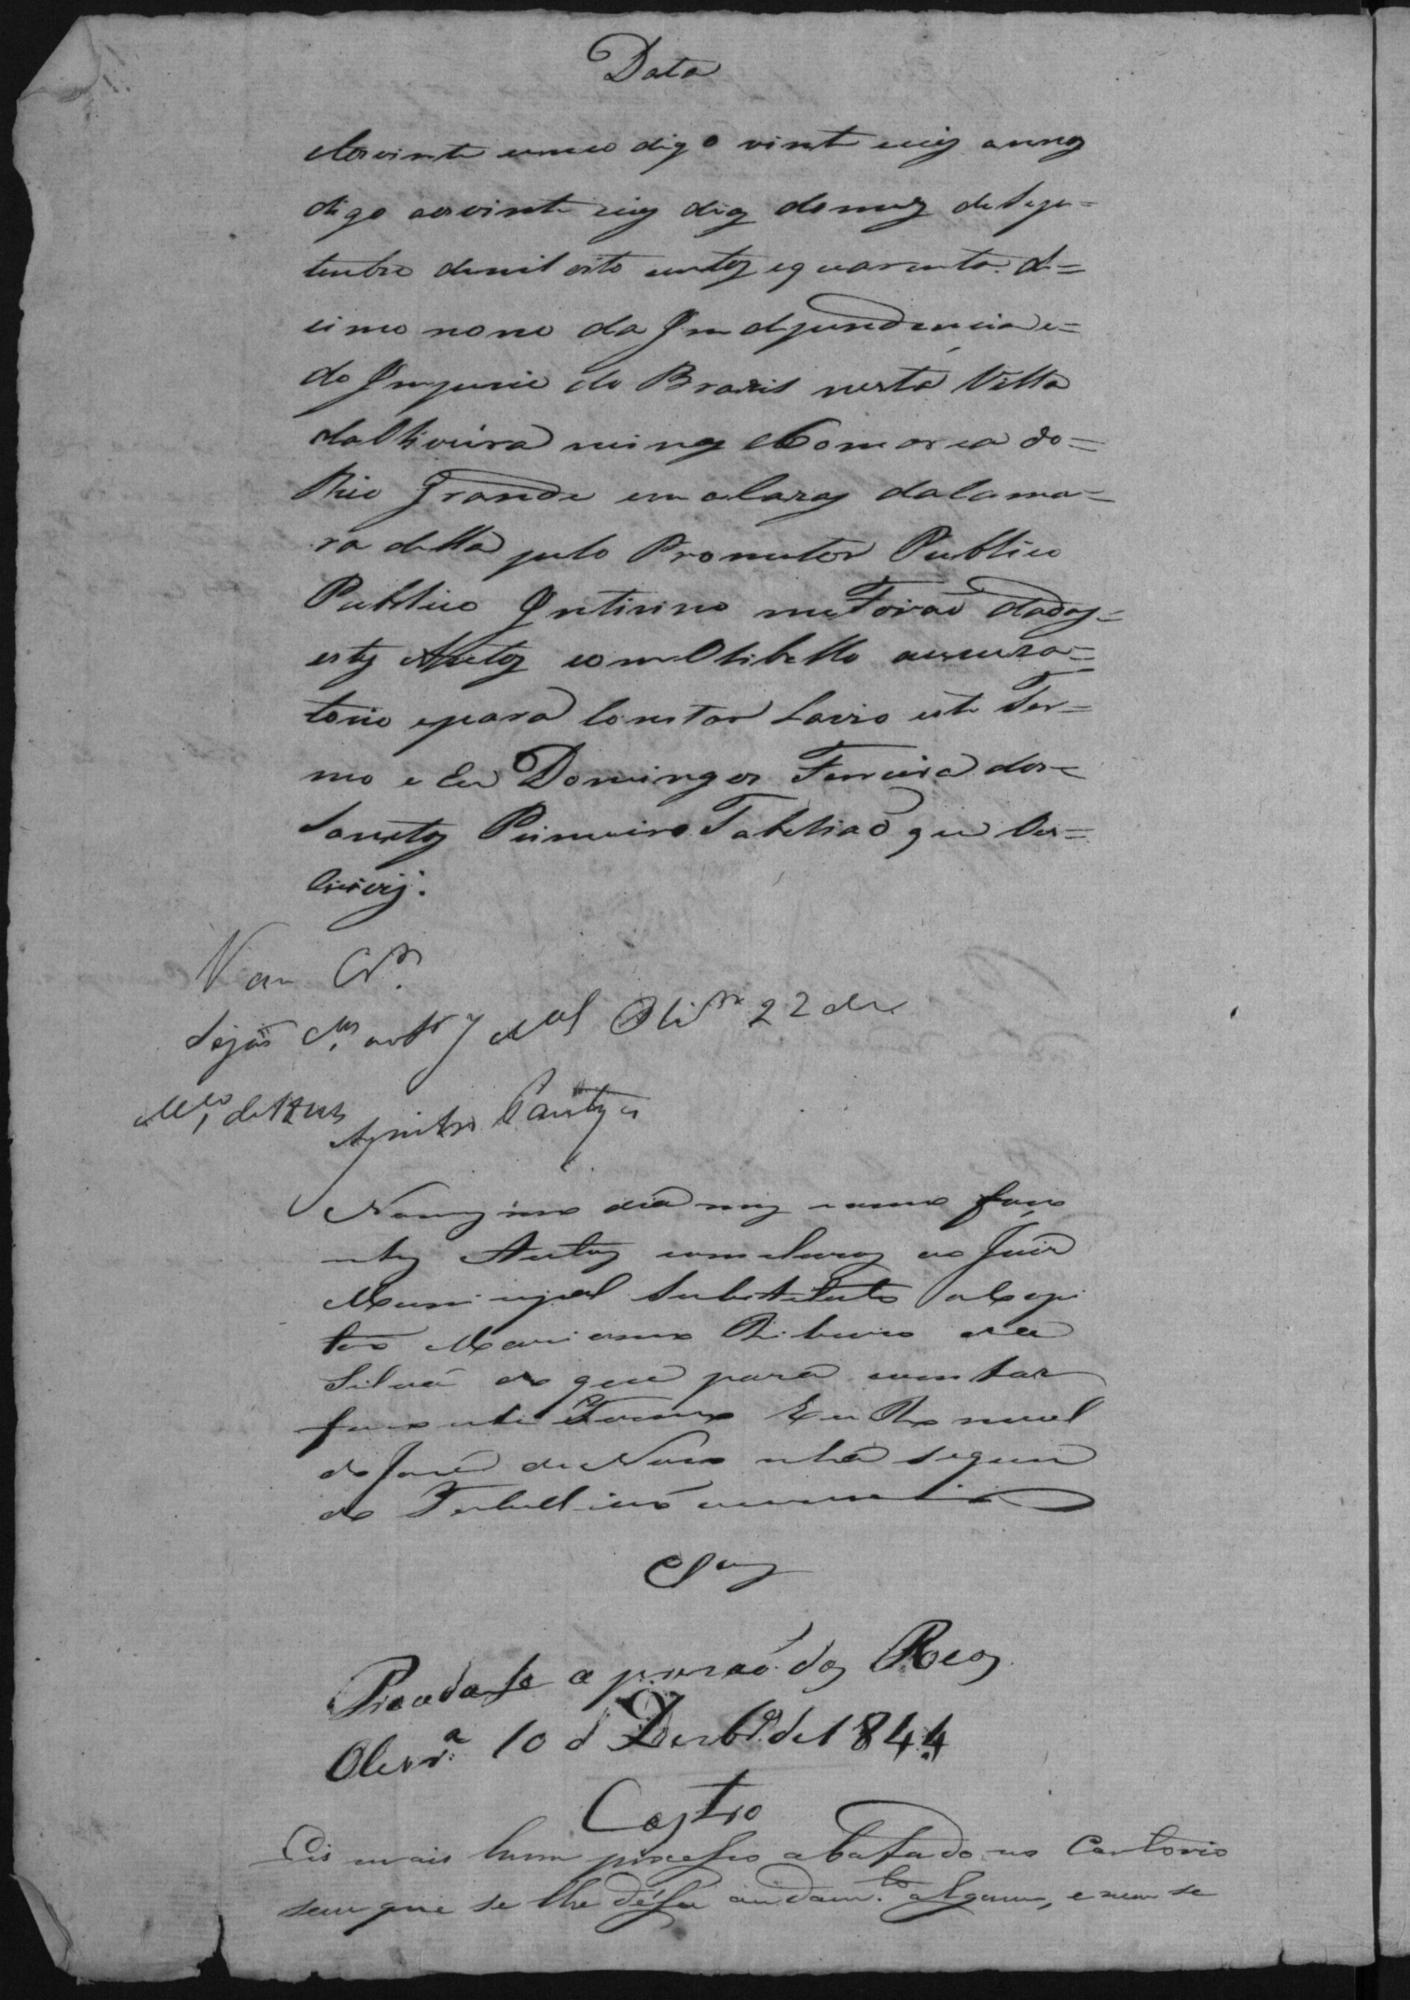 Data
Aos vinte cinco digo vinte seis annos
digo aos vinte seis dias do mes de Septe=
tembro de mil oito centos e quarenta de=
cimo nono da Independencia e=
do Imperio do Brazil nesta Villa
da Oliveira minas Comarca do=
Rio Grande em a Caza da Cama=
ra della pelo Promutor Publico
Publico Interino me Forão dados=
estes Autos com O libello accuza=
torio e para Constar Lavro este Ter=
mo e Eu Domingos Ferreira dos=
Santos Primeiro Tabelião que Es=
Crevij.
Vão Cr.
Sejão autos Oliv.ra 22 de
M.ço de
No mesmo dia mes e anno faço
estes Autos conclusos ao Juiz
Municipal Substituto o Capi
tão Marianno Ribeiro da
Silva do que para constar
faço este Termo Eu Manoel
de José de segun
do Tabellião
Clos
Proceda-se a prizão dos Reos
Olivr.a 10 d Dezbr.o de 1844
Castro
Eis mais hum processo abafado no Cartorio
sem que se lhe désse andam.to algum, e nem se